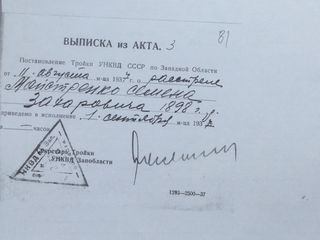 81
ВЫПИСКА из АКТА. 3
Постановление Тройки УНКВД СССР по Западной Области
от „11" августа м-ца 1937 г. о расстреле
Майстренко Семена
Захаровича 1898 г. р.
приведено в исполнение „1" сентября м-ца 193 7
в — часов.
Секретарь Тройки
УНКВД Запобласти
1293—2500—37